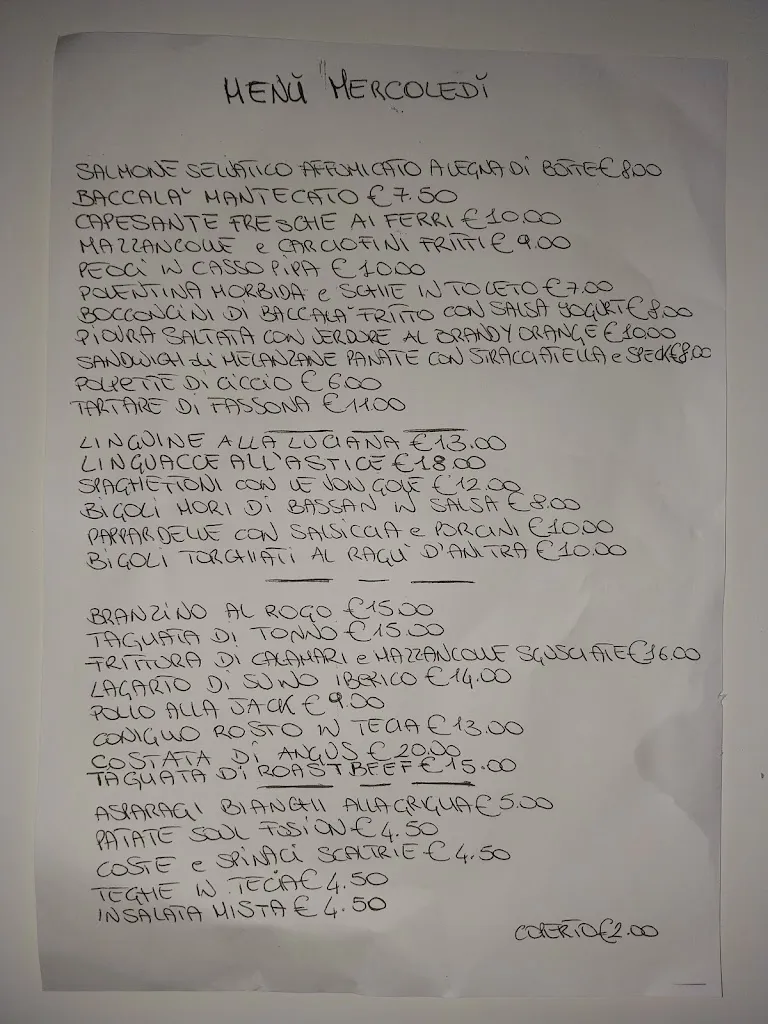 MENÙ MERCOLEDÌ
SALMONE SELVATICO AFFUMICATO A LEGNA DI BOTTE €8,00
BACCALA' MANTECATO €7.50
CAPESANTE FRESCHE AI FERRI €10.00
MAZZANCOLLE e CARCIOFINI FRITTI €9.00
PEOCI IN CASSOPIPA €10.00
POLENTINA MORBIDA e SCHIE IN TOCETO €7.00
BOCCONCINI DI BACCALA' FRITTO CON SALSA YOGURT €8.00
PIOVRA SALTATA CON VERDURE AL BRANDY ORANGE €10.00
SANDWICH di MELANZANE PANATE CON STRACCIATELLA e SPECK €8.00
POLPETTE DI CICCIO €6.00
TARTARE DI FASSONA €11.00
LINGUINE ALLA LUCIANA €13.00
LINGUACCE ALL'ASTICE €18.00
SPAGHETTONI CON LE VONGOLE €12.00
BIGOLI MORI DI BASSAN IN SALSA €8.00
PAPPARDELLE CON SALSICCIA e PORCINI €10.00
BIGOLI TORCHIATI AL RAGU' D'ANITRA €10.00
BRANZINO AL ROGO €15.00
TAGLIATA DI TONNO €15.00
FRITTORA DI CALAMARI e MAZZANCOLLE SGUSCIATE €16.00
LAGARTO DI SUINO IBERICO €14.00
POLLO ALLA JACK €9.00
CONIGLIO ROSTO IN TECIA €13.00
COSTATA DI ANGUS €20.00
TAGLIATA DI ROAST BEEF €15.00
ASPARAGI BIANCHI ALLA GRIGLIA €5.00
PATATE SOUL FUSION €4.50
COSTE e SPINACI SCALTRIE €4.50
TEGHE IN TECIA €4.50
INSALATA MISTA €4.50
COPERTO €2.00